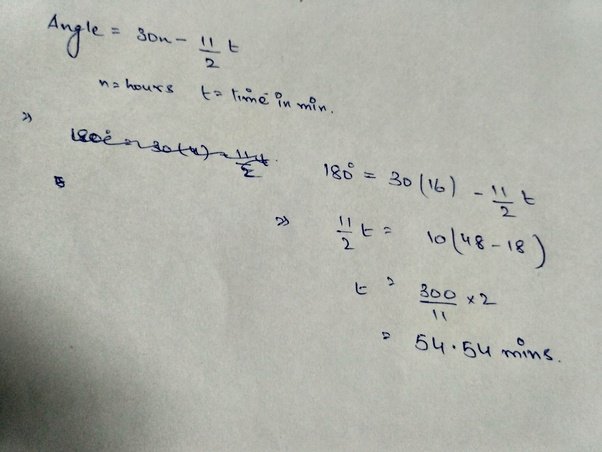 Angle = 30n - 11/2 t
n = hours t = time in min.
⇒ 180° = 30(16) - 11/2 t
⇒ 11/2 t = 10(48-18)
t = 300/11 × 2
= 54.54 mins.